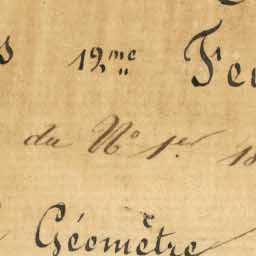 12,me Feu
du No 1er
Géomètre